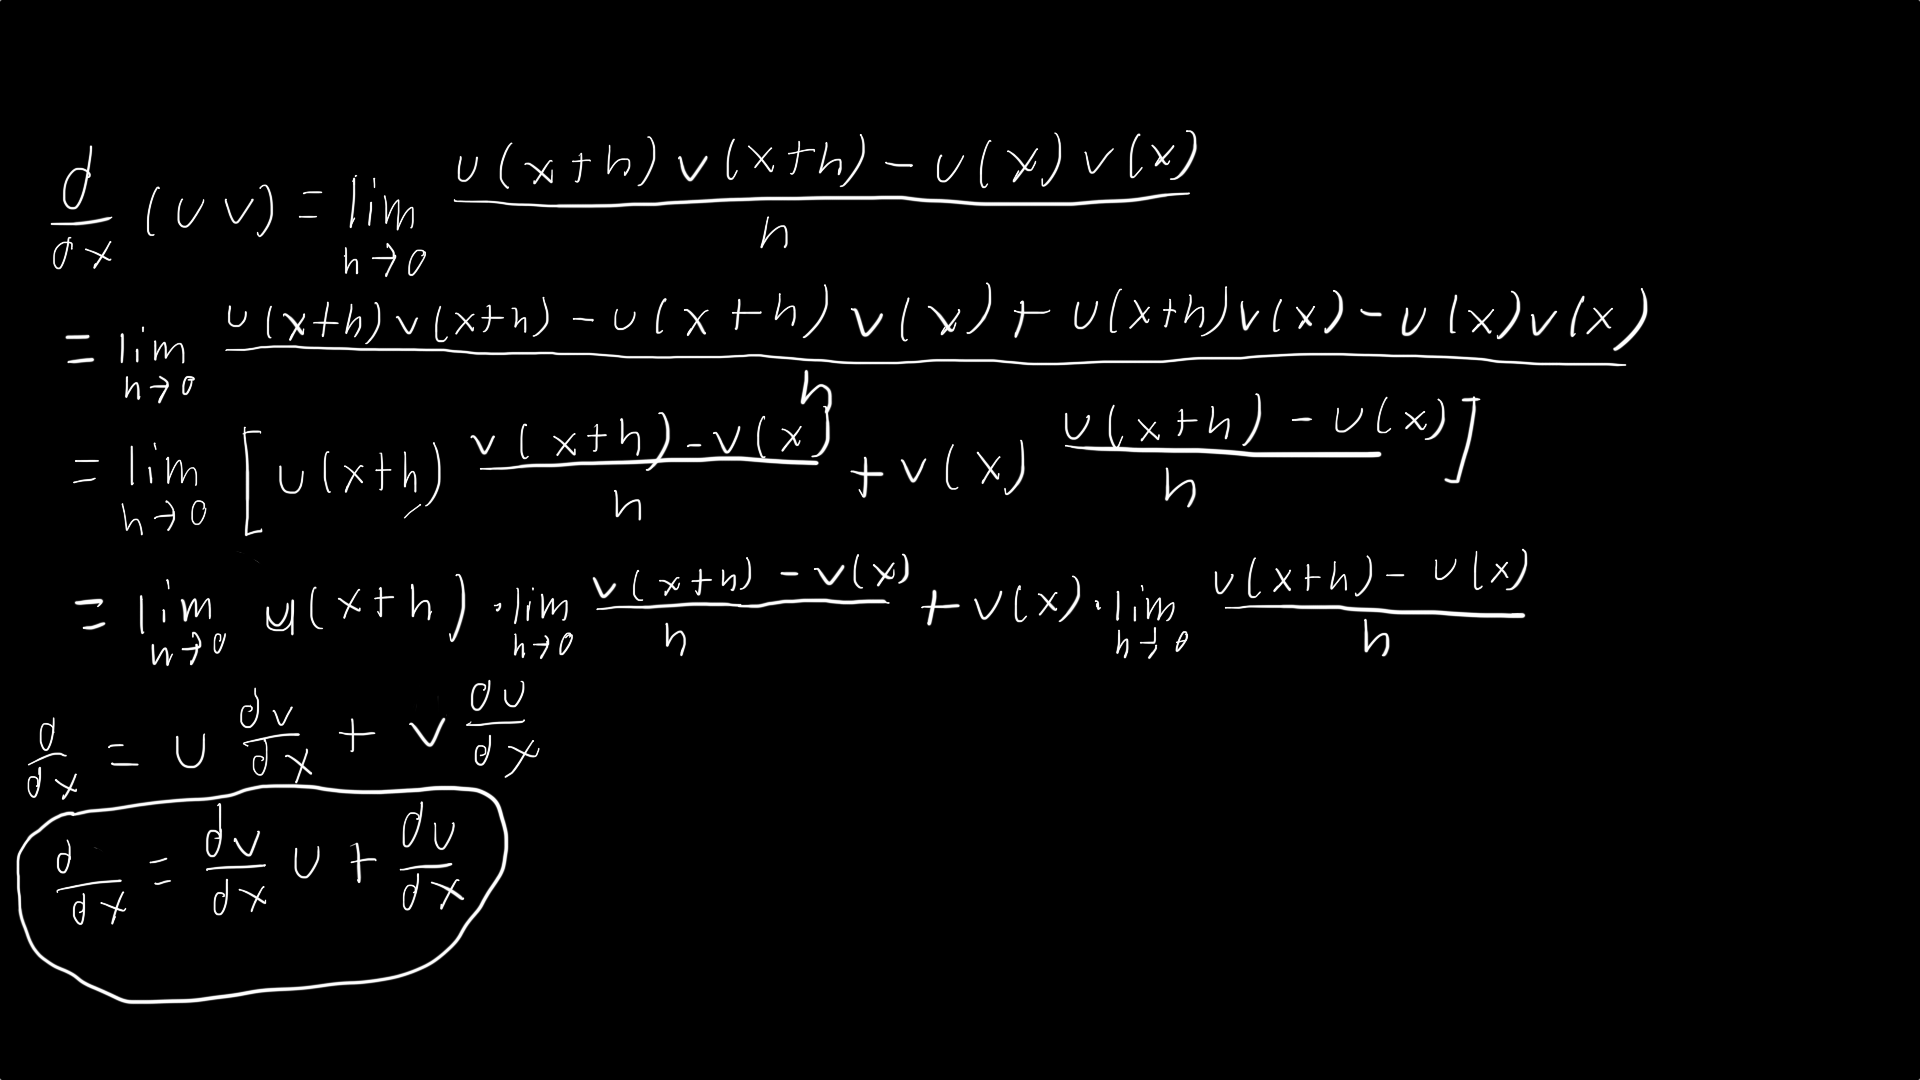 d/dx (u v) = lim h→0 (u(x+h) v(x+h) - u(x) v(x))/h
= lim h→0 (u(x+h) v(x+h) - u(x+h) v(x) + u(x+h) v(x) - u(x) v(x))/h
= lim h→0 [u(x+h) (v(x+h) - v(x))/h + v(x) (u(x+h) - u(x))/h]
= lim h→0 u(x+h) · lim h→0 (v(x+h) - v(x))/h + v(x) · lim h→0 (u(x+h) - u(x))/h
d/dx = u dv/dx + v du/dx
d/dx = dv/dx u + du/dx